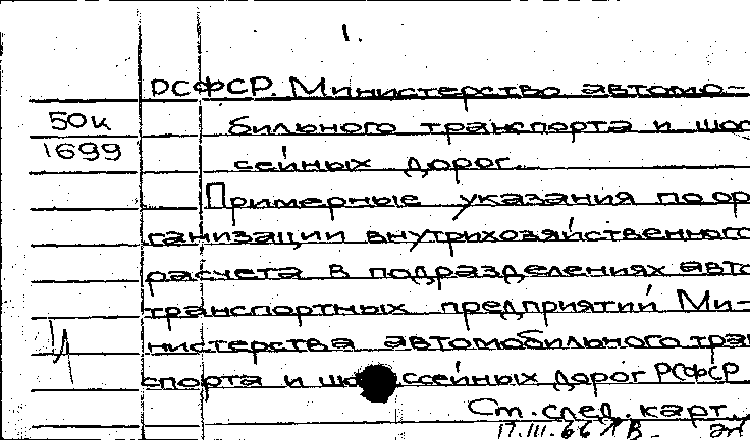 1.
РСФСР. Министерство автомо-
50к бильного транспорта и шос
1699 сейных дорог.
Примерные указания по ор
ганизации внутрихозяйственного
расчета в подразделениях авто
транспортных предприятий Ми-
нистерства автомобильного тран
спорта и шоссейных дорог РСФСР
См. след. карт.
17.III.66